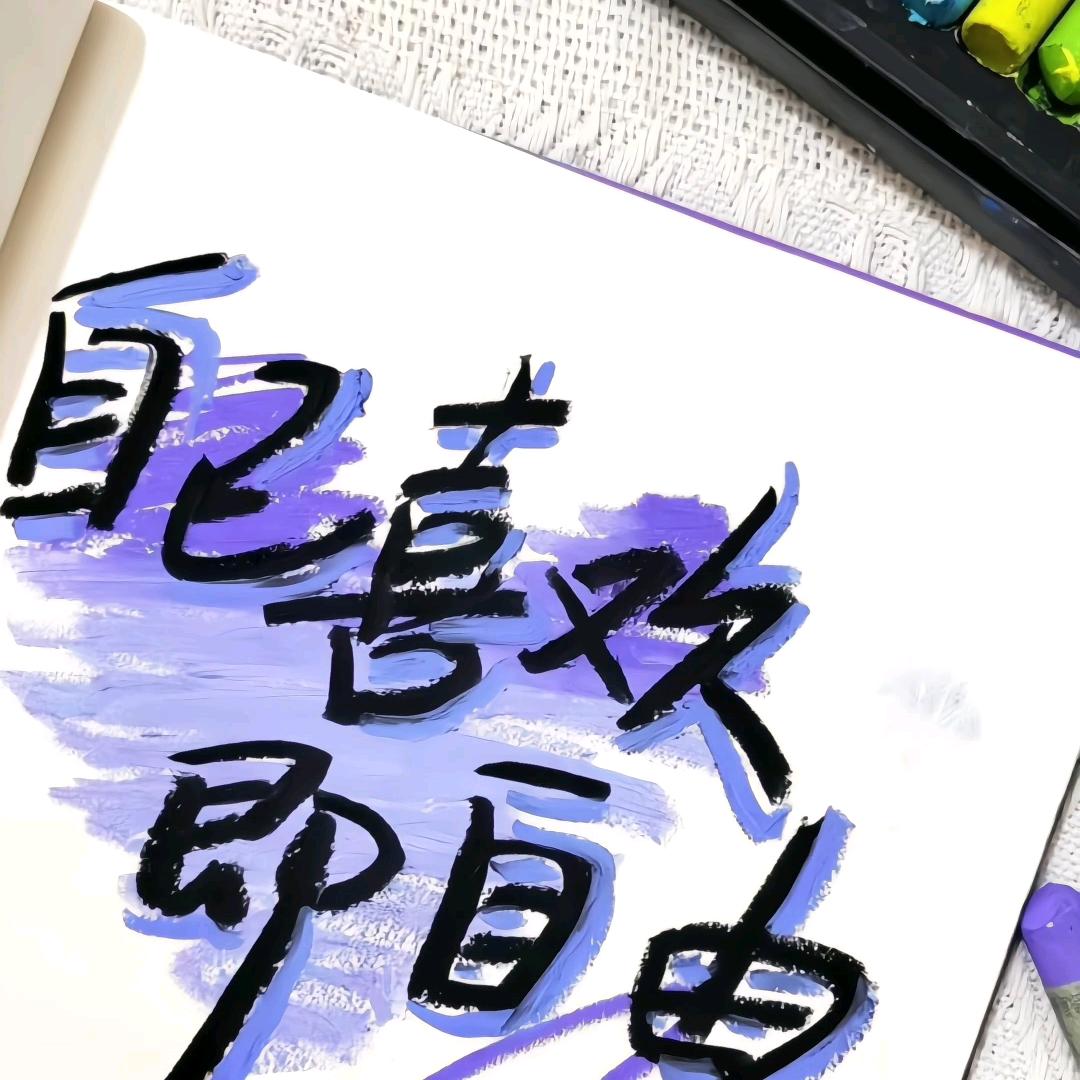 自己喜欢
即自由